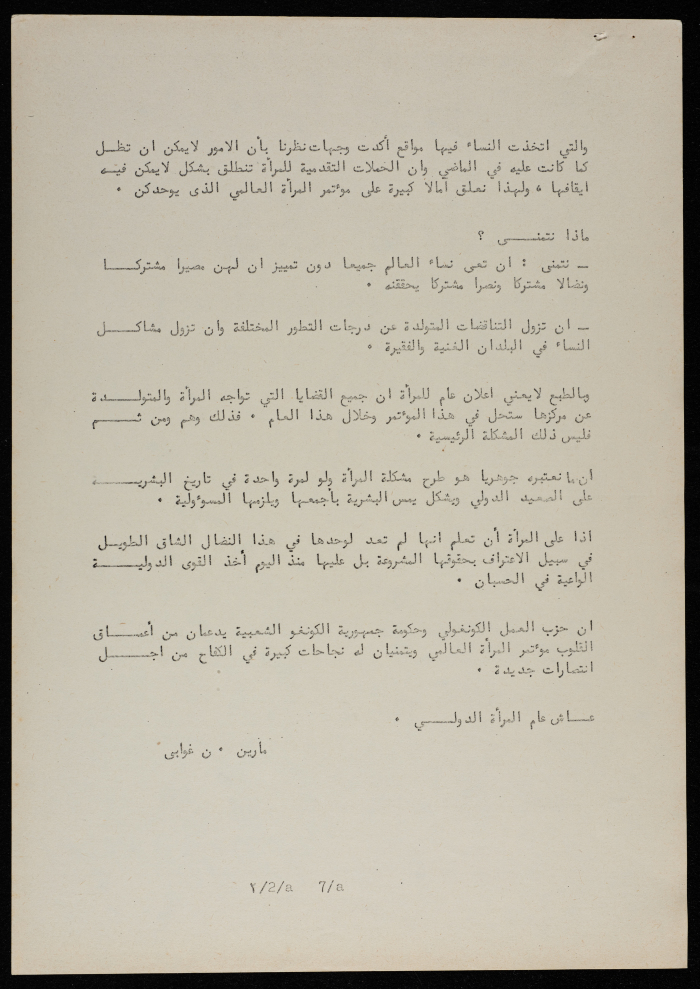 والتي اتخذت النساء فيها مواقع أكدت وجهات نظرنا بأن الامور لايمكن ان تظـل
كما كانت عليه في الماضي وان الحملات التقدمية للمرأة تنطلق بشكل لايمكن فيـه
ايقافها ، ولهذا نعلق امالا كبيرة على مؤتمر المرأة العالمي الذى يوحدكن .
ماذا نتمنــى ؟
ــ نتمنى : ان تعى نساء العالم جميعا دون تمييز ان لهن مصيرا مشتركــا
ونضالا مشتركا ونصرا مشتركا يحققنه .
ــ ان تزول التناقضات المتولدة عن درجات التطور المختلفة وان تزول مشاكـل
النساء في البلدان الغنية والفقيرة .
وبالطبع لايعني اعلان عام للمرأة ان جميع القضايا التي تواجه المرأة والمتولــدة
عن مركزها ستحل في هذا المؤتمر وخلال هذا العام . فذلك وهم ومن ثــم
فليس ذلك المشكلة الرئيسية .
ان مانعتبره جوهريا هو طرح مشكلة المرأة ولو لمرة واحدة في تاريخ البشريــة
على الصعيد الدولي وبشكل يمس البشرية بأجمعها ويلزمها المسوؤلية .
اذا على المرأة أن تعلم انها لم تعد لوحدها في هذا النضال الشاق الطويــل
في سبيل الاعتراف بحقوقها المشروعة بل عليها منذ اليوم أخذ القوى الدوليــة
الواعية في الحسبان .
ان حزب العمل الكونغولي وحكومة جمهورية الكونغو الشعبية يدعمان من أعمــاق
القلوب مؤتمر المرأة العالمي ويتمنيان له نجاحات كبيرة في الكفاح من اجــل
انتصارات جديدة .
عــاش عام المرأة الدولــي .
مارين . ن غوابى
٢/2/a 7/a